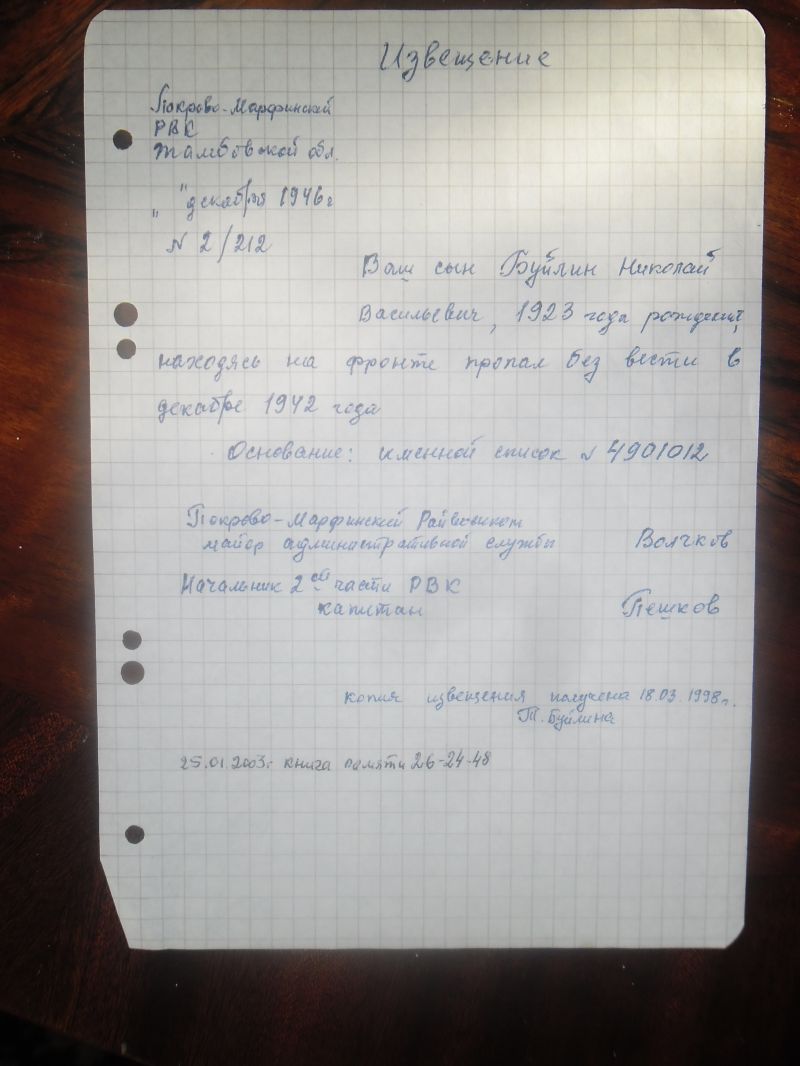 Извещение
Покрово-Марфинский
РВК
Тамбовской обл.
„ " декабря 1946 г
№ 2/212
Ваш сын Буйлин Николай
Васильевич, 1923 года рождения,
находясь на фронте пропал без вести в
декабре 1942 года
Основание: именной список № 4901012
Покрово-Марфинский Райвоенком
майор административной службы Волчков
Начальник 2ой части РВК
капитан Пешков
копия извещения получена 18.03.1998г.
Т. Буйлина
25.01.2003г книга памяти 26-24-48